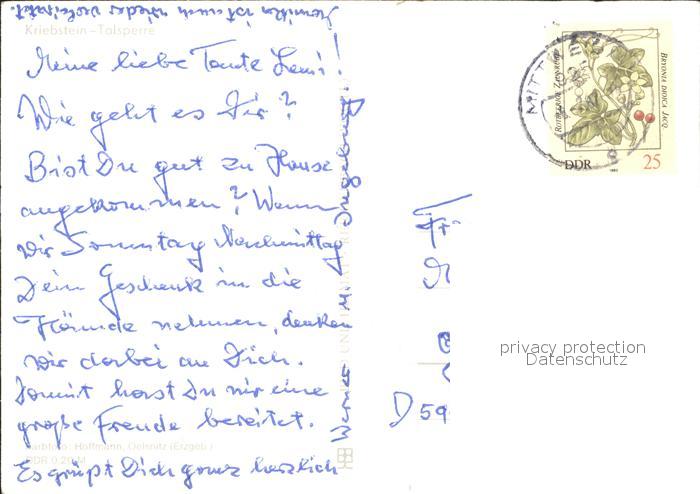 Kriebstein - Talsperre
Meine liebe Tante Leni!
Wie geht es Dir?
Bist Du gut zu Hause
angekommen? Wenn
wir Sonntag Nachmittag
Dein Geschenk in die
Hände nehmen, denken
wir dabei an Dich.
Damit hast Du mir eine
große Freude bereitet.
Farbfoto: Hoffmann, Oelsnitz (Erzgeb.)
DDR 0,20 M
Es grüßt Dich ganz herzlich
Werner M.
ist auch wieder
Rotfrüchtige Zaunrübe
BRYONIA DIOICA JACQ.
DDR
1982
25
MITT
Fr
D 59
privacy protection
Datenschutz